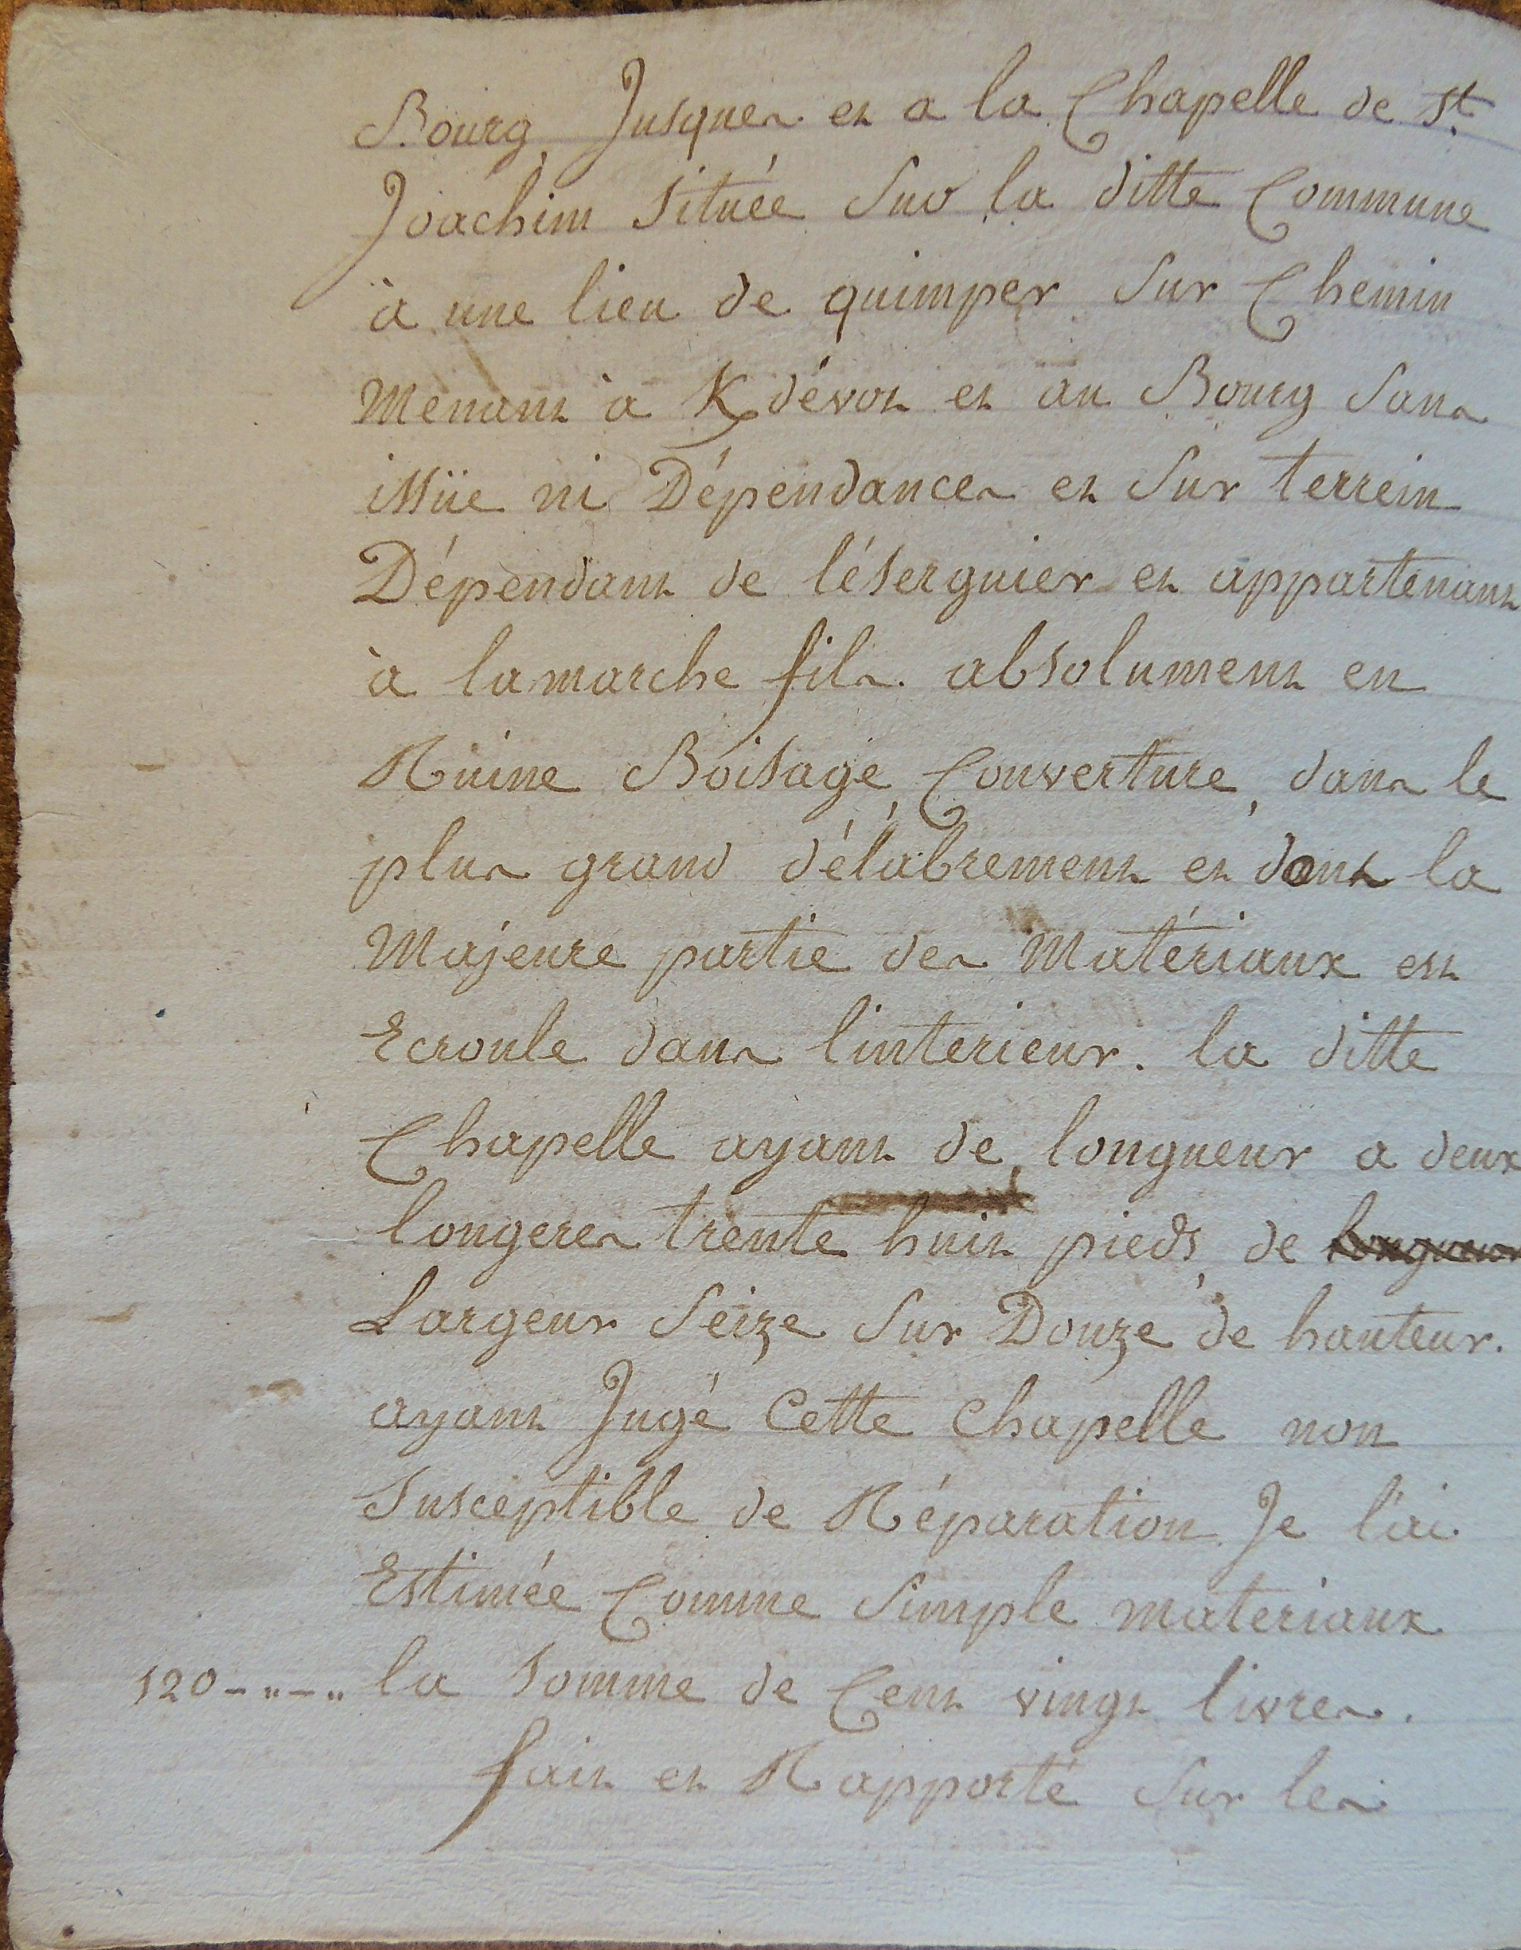 Bourg Jusques et a la Chapelle de St.
Joachim située sur la ditte Commune
à une lieu de quimper sur Chemin
Menant à Kdévot et au Bourg sans
issüe ni Dépendances et sur terrein
Dépendant de léserguier et appartenant
à la marche fils. absolument en
Ruine Boisage, Couverture, dans le
plus grand délabrement et dont la
Majeure partie des Matériaux est
Ecroule dans linterieur. la ditte
Chapelle ayant de longueur a deux
longeres trente huit pieds, de longueur
Largeur seize sur Douze de hauteur.
ayant Jugé cette chapelle non
susceptible de Réparation Je l'ai
Estimée Comme simple materiaux
120-"-" la somme de Cent vingt livres.
fait et Rapporté sur les